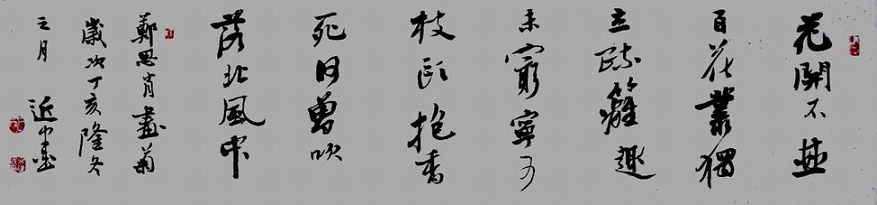 花開不並
百花叢獨
立疏籬趣
未窮寧可
枝頭抱香
死何曾吹
落北風中
鄭思肖畫菊
歲次丁亥隆冬
之月